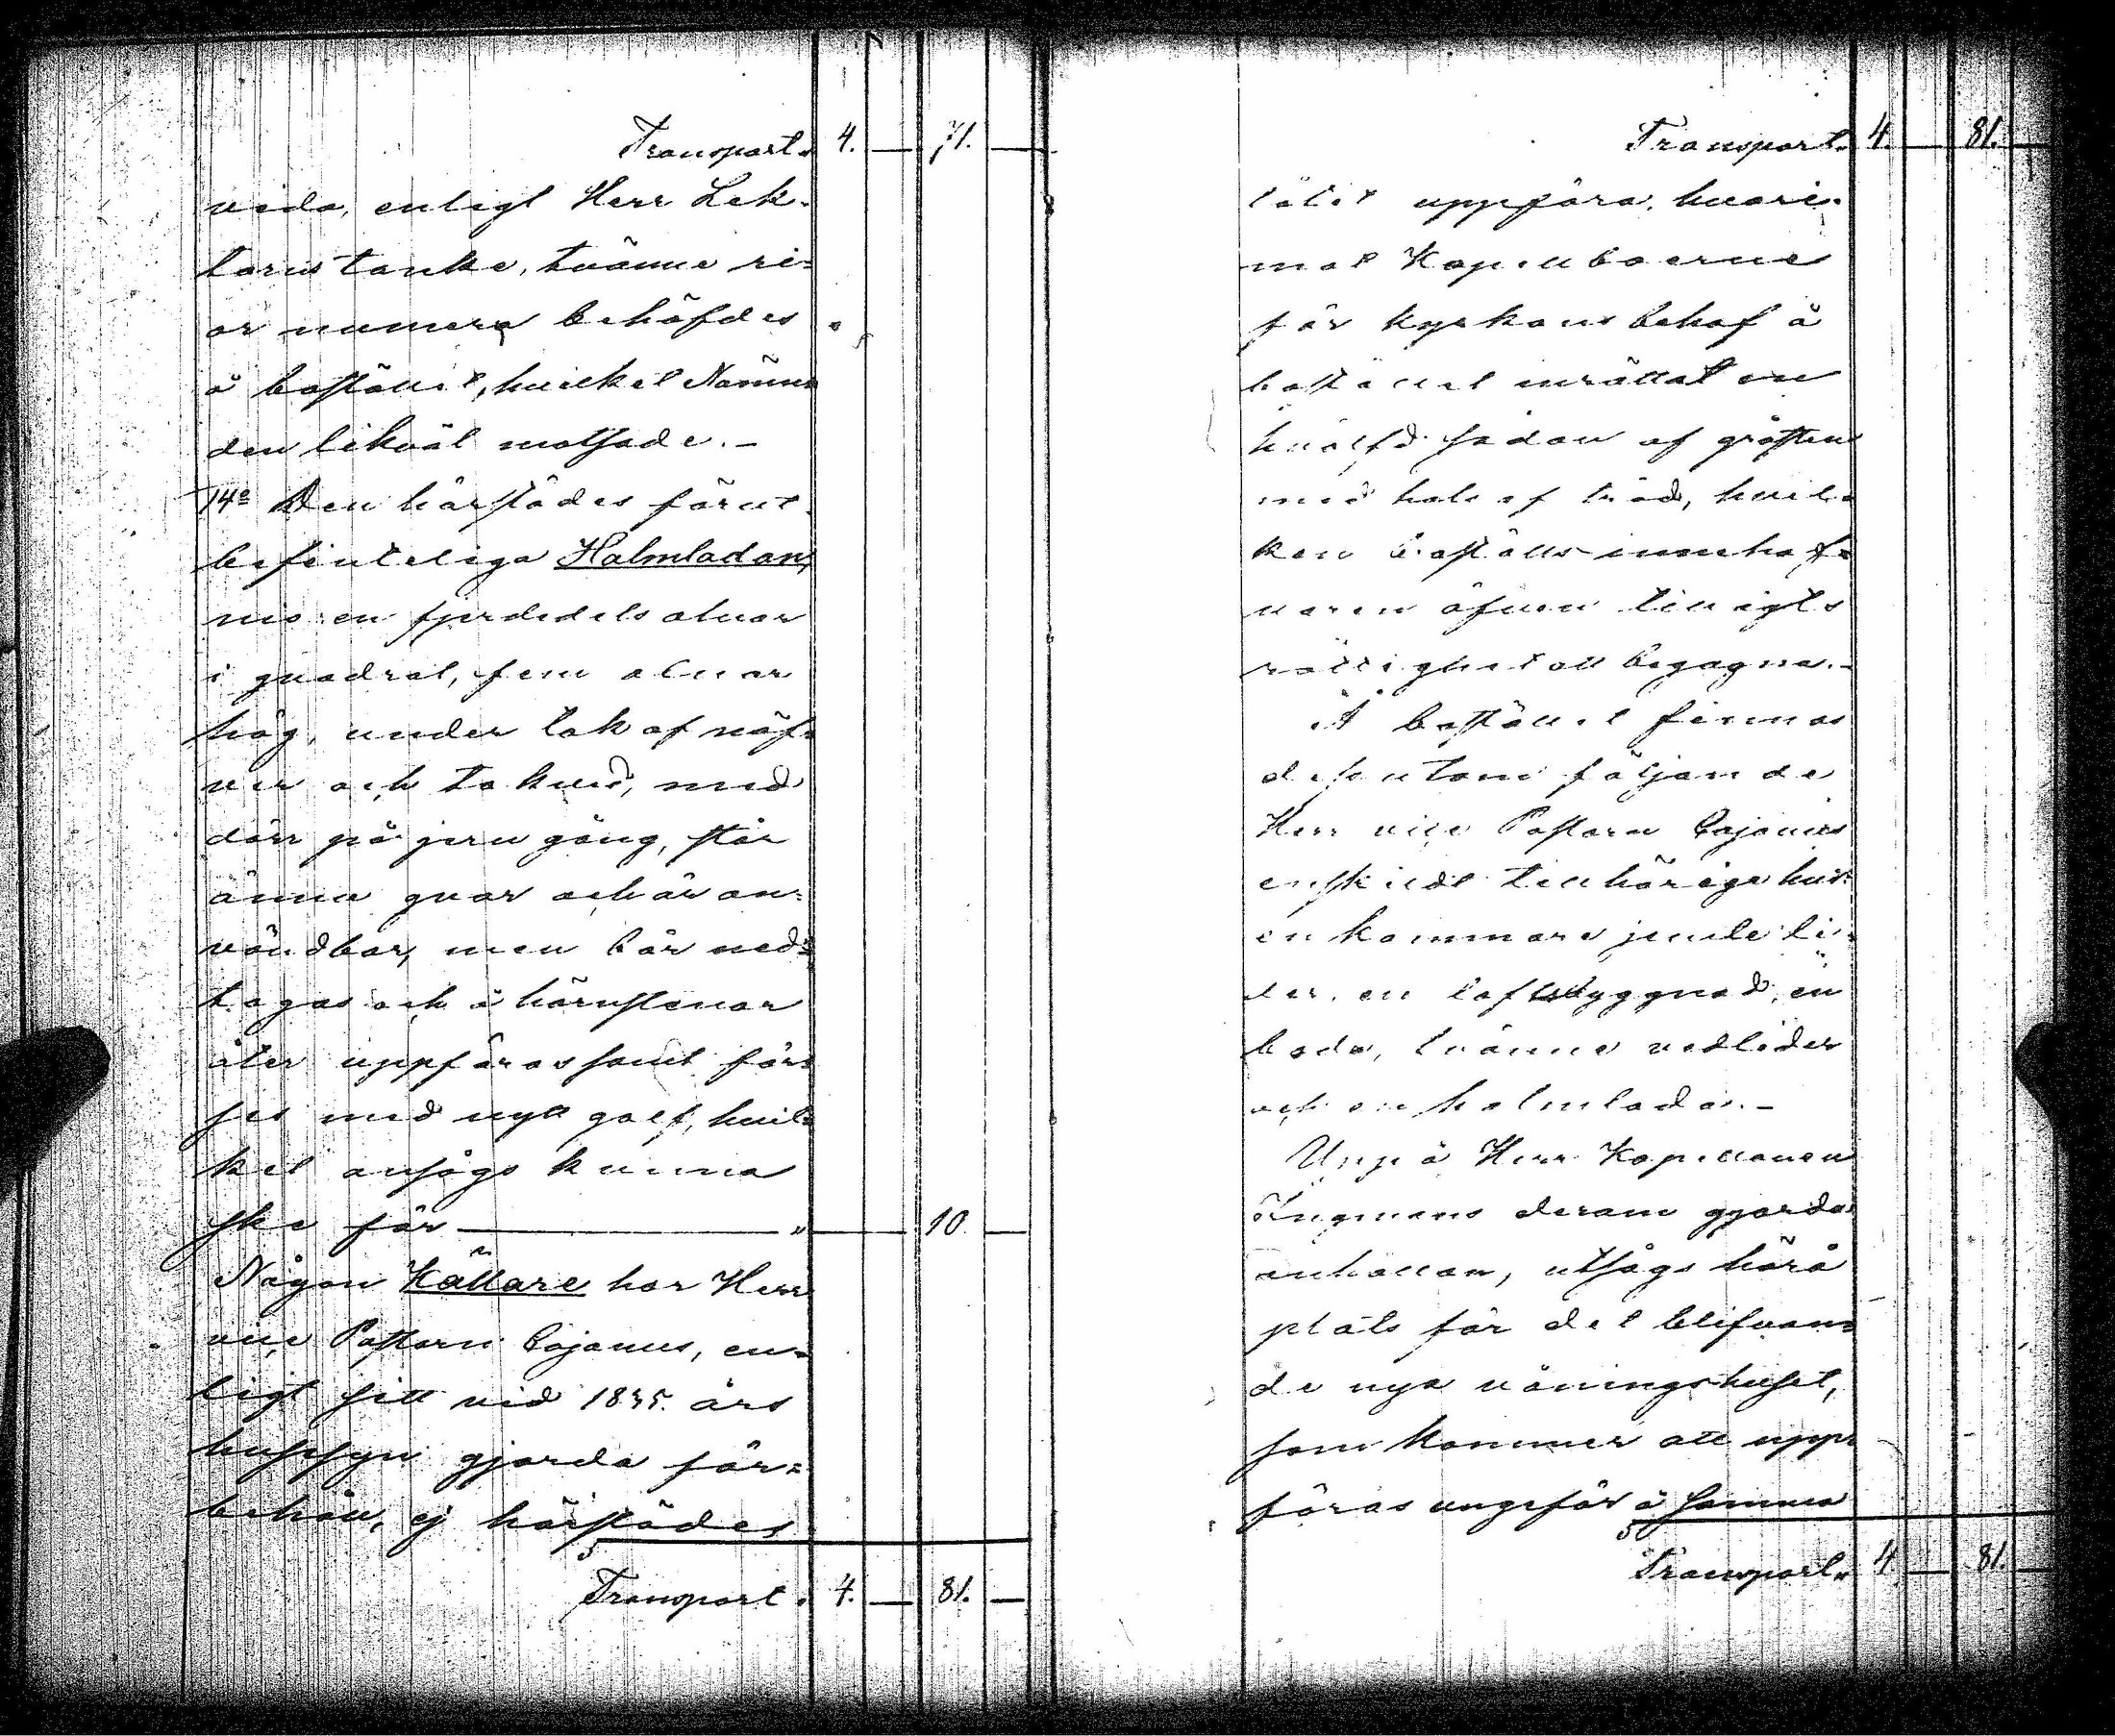 Transport. 4. — 71. —
vida, enligt Herr Lek-
torns tanke, tvänne ri-
or numera behöfdes
å bostället, hvilket Nämn
den likväl motsade. —
14º Den härstädes förut
befinteliga Halmladan,
nio en fjerdedels alnar
i quadrat, fem alnar
hög, under tak af näf-
ver och takved, med
dörr på jern gång, står
ännu qvar och är an-
vändbar, men bör ned-
tagas och å hörnstenar
åter uppföras samt för-
ses med nytt golf, hvil-
ket ansågs kunna
ske för — " 10. —
Någon Källare har Herr
vice Pastorn Cajanus, en-
ligt sitt vid 1835. års
hussyn gjorda för-
behåll, ej härstädes
Transport. 4. — 81. —
Transport. 4. — 81. —
låtit uppföra, hvari-
mot Kapellboerne
för kyrkans behof å
bostället inrättat en
hvälfd sådan af gråsten
med hals af träd, hvil-
ken boställs innehaf-
varen äfven tillagts
rättighet att begagna. —
Å bostället finnas
dessutom följande
Herr vice Pastorn Cajanus
enskildt tillhöriga hus:
en kammare jemte li-
der, en loftsbyggnad, en
bode, tvänne vedlider
och en halmlada. —
Uppå Herr Kapellanen
Öngmans derom gjorda
anhållan, utsågs härå
plats för det blifvan-
de nya våningshuset,
som kommer att upp-
föras ungefär å samma
Transport. 4. — 81. —